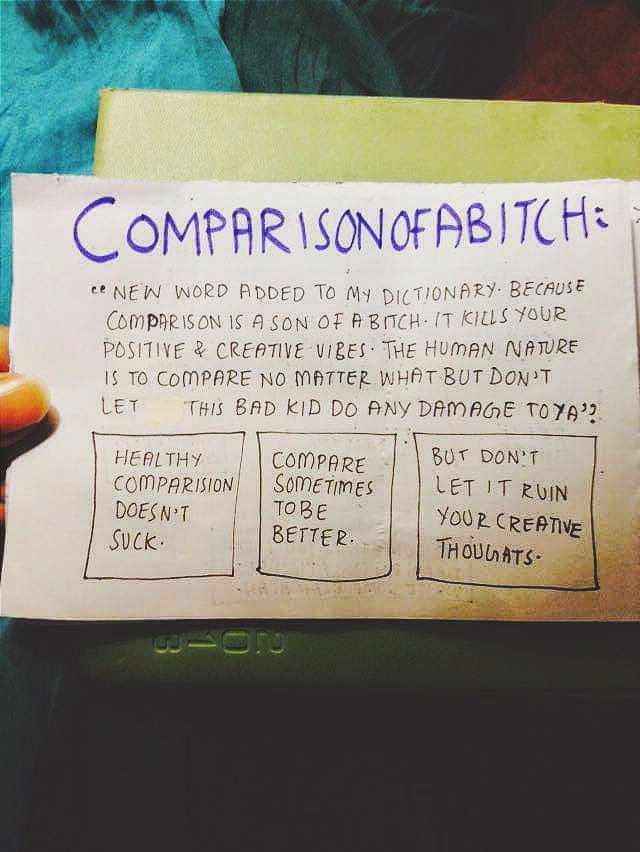 COMPARISONOFABITCH:
"NEW WORD ADDED TO MY DICTIONARY. BECAUSE
COMPARISON IS A SON OF A BITCH. IT KILLS YOUR
POSITIVE & CREATIVE VIBES. THE HUMAN NATURE
IS TO COMPARE NO MATTER WHAT BUT DON'T
LET THIS BAD KID DO ANY DAMAGE TO YA"
HEALTHY
COMPARISION
DOESN'T
SUCK.
COMPARE
SOMETIMES
TO BE
BETTER.
BUT DON'T
LET IT RUIN
YOUR CREATIVE
THOUGHTS.